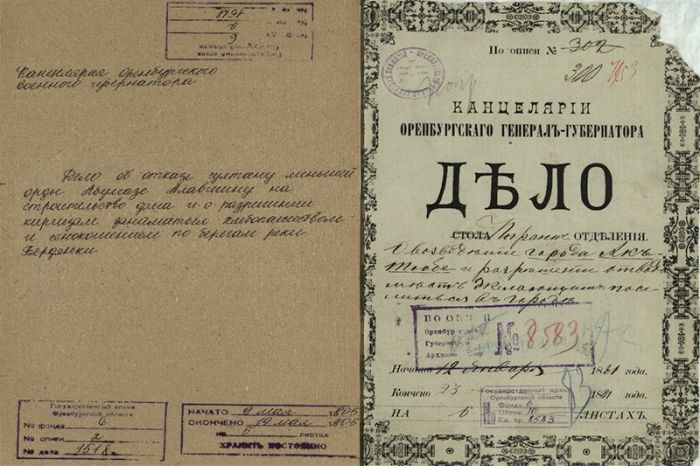 Канцелярия Оренбургского
военного губернатора
Дело об отказе султану меньшей
орды Абулгазе Клавшину на
строительство дома и о разрешении
киргизам заниматься хлебопашеством
и сенокошением по берегам реки
Бердянки
Государственный архив
Оренбургской области
№ фонда 6
№ описи 2
№ дела 1518
НАЧАТО 9 мая 1806
ОКОНЧЕНО 19 мая 1806
на 6 листах
ХРАНИТЬ ПОСТОЯННО
По описи № 302
300 7953
КАНЦЕЛЯРІИ
ОРЕНБУРГСКАГО ГЕНЕРАЛЪ-ГУБЕРНАТОРА
ДѢЛО
СТОЛА Погранич. ОТДѢЛЕНІЯ.
О возведеніи города Акъ-
Тюбе и разрешеніи отвода
мѣстъ желающимъ посе-
литься въ городѣ
Оренбург
Губерн
Архивно
№ 8583
Начато 12 января 1881 года.
Кончено 23 1881 года.
НА 6 ЛИСТАХЪ.
Государственный архив
Оренбургской области
Фонд 6
Опись 10
Ед. хр. 8583